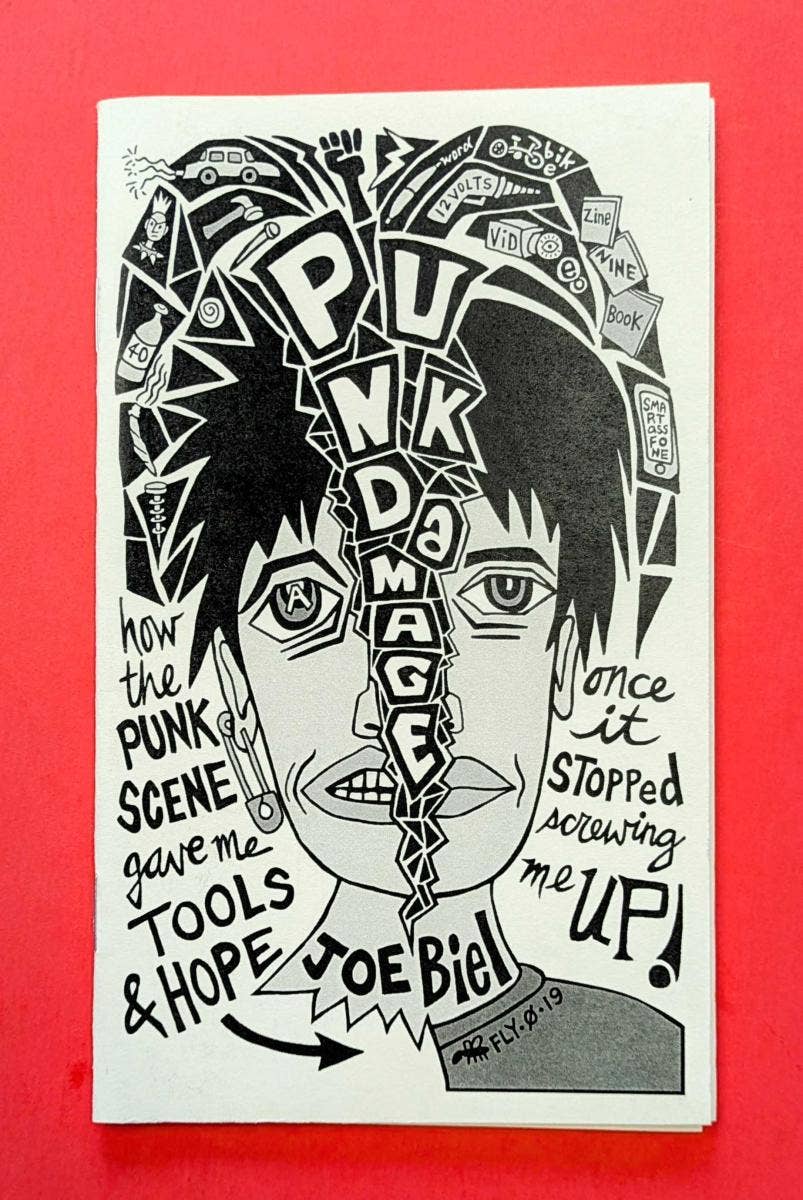 -word
bike
12 VOLTS
ViD
e
Zine
NINE
BOOK
40
SMA
RT
ass
FO
NE
PUNK
DaMAGE
A
U
how
the
PUNK
SCENE
gave me
TOOLS
& HOPE
once
it
STOPPed
screwing
me UP!
JOE Biel
FLY·Ø·19